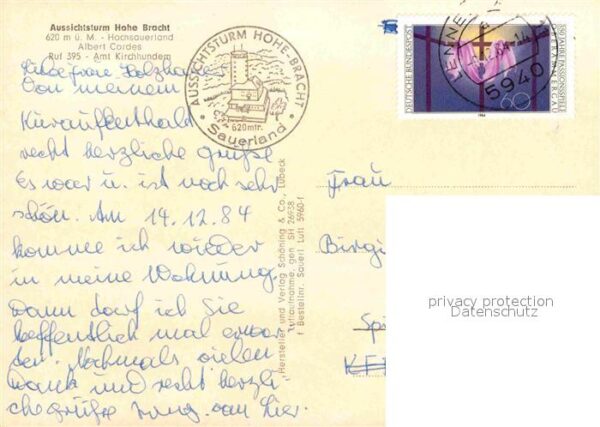 Aussichtsturm Hohe Bracht
620 m ü. M. - Hochsauerland
Albert Cordes
Ruf 395 - Amt Kirchhundem
AUSSICHTSTURM HOHE-BRACHT
620mtr.
Sauerland
DEUTSCHE BUNDESPOST
350 JAHRE PASSIONSSPIELE
OBERAMMERGAU
60
1984
LENNE
5940
Liebe Frau
Von meinem
Kuraufenthald
recht herzliche Grüße
Es war u. ist noch sehr
schön. Am 14.12.84
komme ich wieder
in meine Wohnung.
Dann darf ich Sie
hoffentlich mal erwar
ten. Nochmals vielen
Dank und recht herzli
che Grüße von hier.
Hersteller und Verlag Schöning & Co., Lübeck
Luftaufnahme, gen. SH 26938
Bestellnr. Sauerl Luft 5960-1
Frau
Birgi
privacy protection
Datenschutz